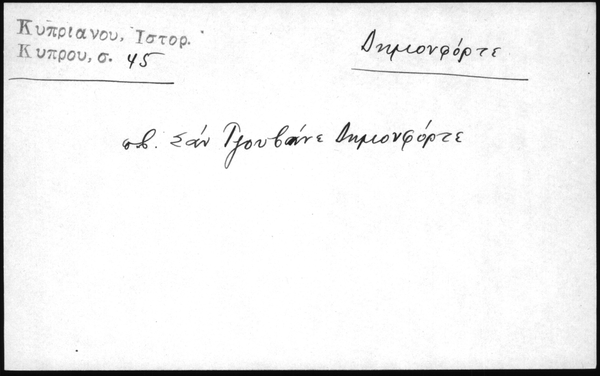 Κυπριανου, Ἱστορ.
Κυπρου, σ. 45
Δημονφόρτε
σβ. Σάν Τζουβάνε Δημονφόρτε